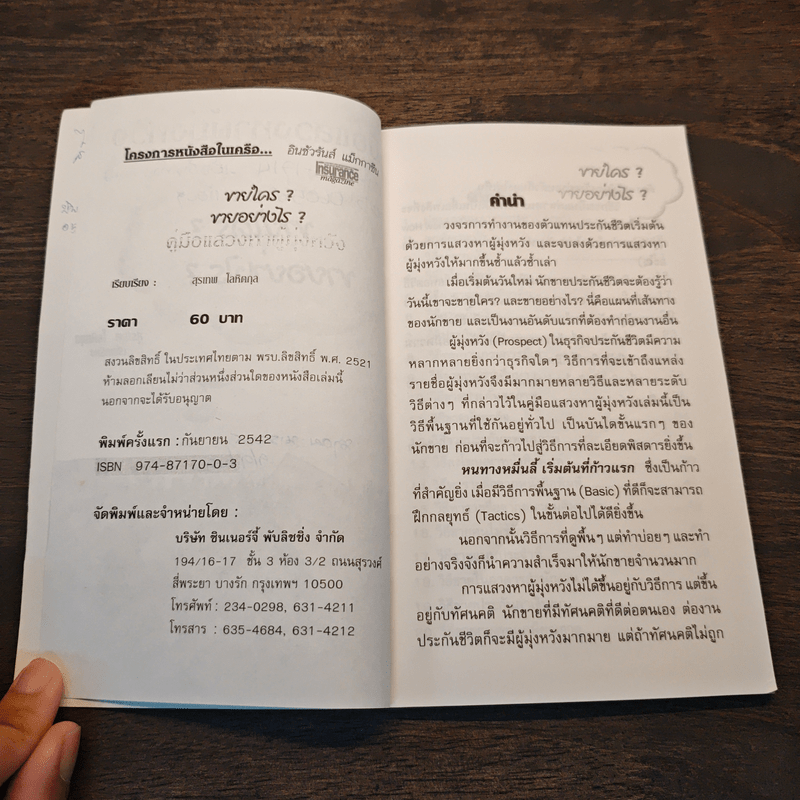 โครงการหนังสือในเครือ... อินชัวรันส์ แม็กกาซีน
Insurance
magazine
ขายใคร ?
ขายอย่างไร ?
เรียบเรียง : สุรเทพ โลหิตกุล
ราคา 60 บาท
สงวนลิขสิทธิ์ ในประเทศไทยตาม พรบ.ลิขสิทธิ์ พ.ศ. 2521
ห้ามลอกเลียนไม่ว่าส่วนหนึ่งส่วนใดของหนังสือเล่มนี้
นอกจากจะได้รับอนุญาต
พิมพ์ครั้งแรก : กันยายน 2542
ISBN 974-87170-0-3
จัดพิมพ์และจำหน่ายโดย :
บริษัท ซินเนอร์จี้ พับลิชชิ่ง จำกัด
194/16-17 ชั้น 3 ห้อง 3/2 ถนนสุรวงศ์
สี่พระยา บางรัก กรุงเทพฯ 10500
โทรศัพท์ : 234-0298, 631-4211
โทรสาร : 635-4684, 631-4212
ขายใคร ?
ขายอย่างไร ?
คำนำ
วงจรการทำงานของตัวแทนประกันชีวิตเริ่มต้น
ด้วยการแสวงหาผู้มุ่งหวัง และจบลงด้วยการแสวงหา
ผู้มุ่งหวังให้มากขึ้นซ้ำแล้วซ้ำเล่า
เมื่อเริ่มต้นวันใหม่ นักขายประกันชีวิตจะต้องรู้ว่า
วันนี้เขาจะขายใคร? และขายอย่างไร? นี่คือแผนที่เส้นทาง
ของนักขาย และเป็นงานอันดับแรกที่ต้องทำก่อนงานอื่น
ผู้มุ่งหวัง (Prospect) ในธุรกิจประกันชีวิตมีความ
หลากหลายยิ่งกว่าธุรกิจใดๆ วิธีการที่จะเข้าถึงแหล่ง
รายชื่อผู้มุ่งหวังจึงมีมากมายหลายวิธีและหลายระดับ
วิธีต่างๆ ที่กล่าวไว้ในคู่มือแสวงหาผู้มุ่งหวังเล่มนี้เป็น
วิธีพื้นฐานที่ใช้กันอยู่ทั่วไป เป็นบันไดขั้นแรกๆ ของ
นักขาย ก่อนที่จะก้าวไปสู่วิธีการที่ละเอียดพิสดารยิ่งขึ้น
หนทางหมื่นลี้ เริ่มต้นที่ก้าวแรก ซึ่งเป็นก้าว
ที่สำคัญยิ่ง เมื่อมีวิธีการพื้นฐาน (Basic) ที่ดีก็จะสามารถ
ฝึกกลยุทธ์ (Tactics) ในขั้นต่อไปได้ดียิ่งขึ้น
นอกจากนั้นวิธีการที่ดูพื้นๆ แต่ทำบ่อยๆ และทำ
อย่างจริงจังก็นำความสำเร็จมาให้นักขายจำนวนมาก
การแสวงหาผู้มุ่งหวังไม่ได้ขึ้นอยู่กับวิธีการ แต่ขึ้น
อยู่กับทัศนคติ นักขายที่มีทัศนคติที่ดีต่อตนเอง ต่องาน
ประกันชีวิตก็จะมีผู้มุ่งหวังมากมาย แต่ถ้าทัศนคติไม่ถูก